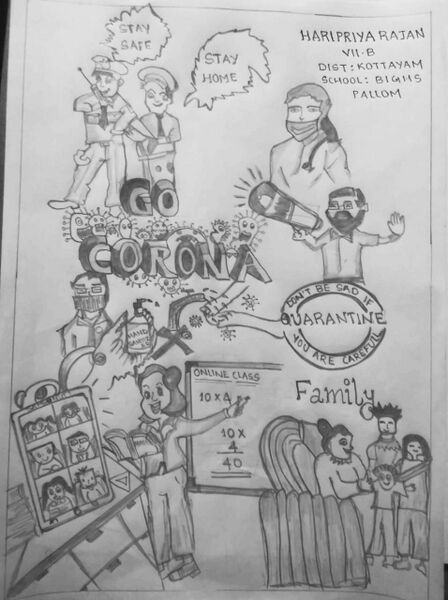 STAY
SAFE
STAY
HOME
HARIPRIYA RAJAN
VII-B
DIST: KOTTAYAM
SCHOOL: BIGHS
PALLOM
GO
CORONA
DON'T BE SAD IF
QUARANTINE
YOU ARE CAREFULL
HAND
ONLINE CLASS
10 x 4
10 x
4
40
Family